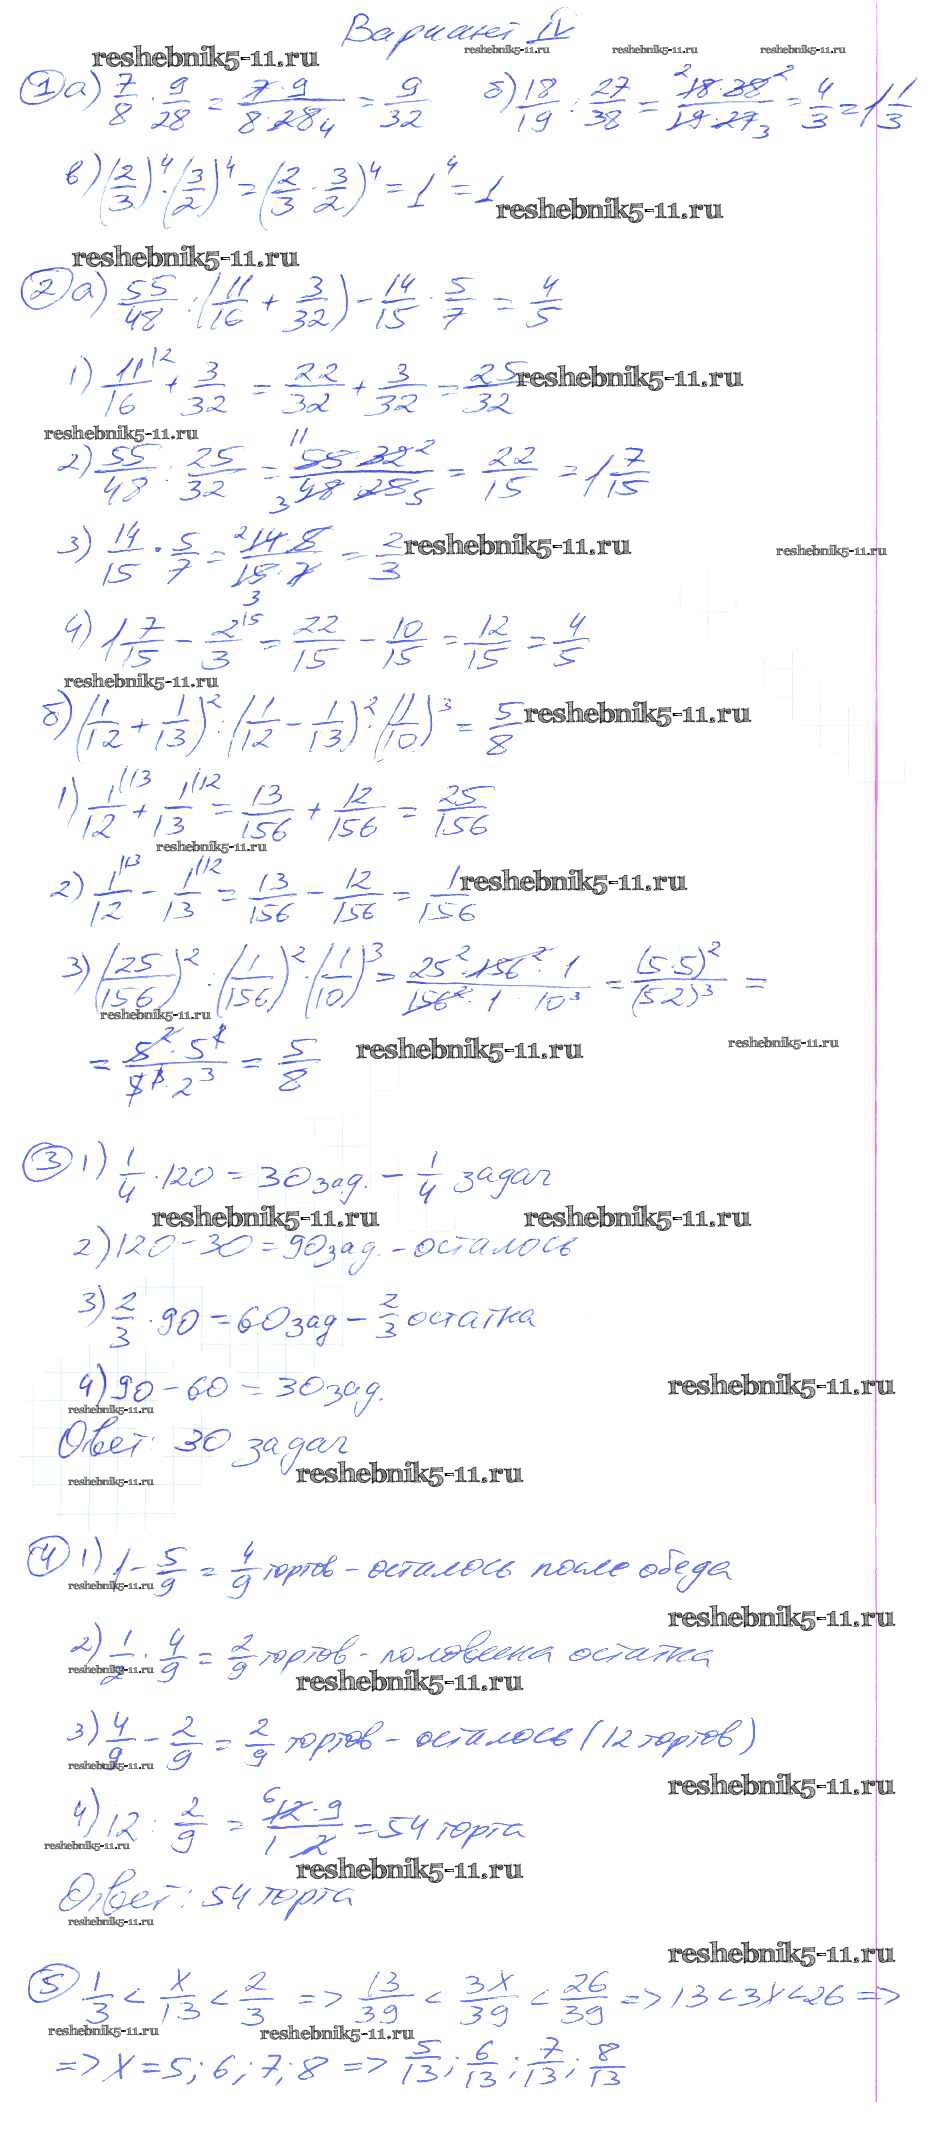 Вариант IV
reshebnik5-11.ru reshebnik5-11.ru reshebnik5-11.ru reshebnik5-11.ru
① а) 7/8 · 9/28 = 7·9/8·28 4 = 9/32 б) 18/19 : 27/38 = 2 18·38 2/19·27 3 = 4/3 = 1 1/3
в) (2/3)⁴ · (3/2)⁴ = (2/3 · 3/2)⁴ = 1⁴ = 1
reshebnik5-11.ru
reshebnik5-11.ru
② а) 55/48 : (11/16 + 3/32) - 14/15 · 5/7 = 4/5
1) 11/16 |2 + 3/32 = 22/32 + 3/32 = 25/32
reshebnik5-11.ru
reshebnik5-11.ru
2) 55/48 : 25/32 = 11 55·32 2/3 48·25 5 = 22/15 = 1 7/15
3) 14/15 · 5/7 = 2 14·5/15·7 3 = 2/3
reshebnik5-11.ru reshebnik5-11.ru
4) 1 7/15 - 2/3 |5 = 22/15 - 10/15 = 12/15 = 4/5
reshebnik5-11.ru
б) (1/12 + 1/13)² : (1/12 - 1/13)² · (1/10)³ = 5/8
reshebnik5-11.ru
1) 1/12 |13 + 1/13 |12 = 13/156 + 12/156 = 25/156
reshebnik5-11.ru
2) 1/12 |13 - 1/13 |12 = 13/156 - 12/156 = 1/156
reshebnik5-11.ru
3) (25/156)² : (1/156)² · (1/10)³ = 25²·156²·1/156²·1·10³ = (5·5)²/(5·2)³ =
reshebnik5-11.ru
= 5²·5²/5³·2³ = 5/8
reshebnik5-11.ru reshebnik5-11.ru
③ 1) 1/4 · 120 = 30 зад. - 1/4 задач
reshebnik5-11.ru reshebnik5-11.ru
2) 120 - 30 = 90 зад. - осталось
3) 2/3 · 90 = 60 зад - 2/3 остатка
4) 90 - 60 = 30 зад.
reshebnik5-11.ru
reshebnik5-11.ru
Ответ: 30 задач
reshebnik5-11.ru
reshebnik5-11.ru
④ 1) 1 - 5/9 = 4/9 тортов - осталось после обеда
reshebnik5-11.ru
reshebnik5-11.ru
2) 1/2 · 4/9 = 2/9 тортов - половина остатка
reshebnik5-11.ru
reshebnik5-11.ru
3) 4/9 - 2/9 = 2/9 тортов - осталось (12 тортов)
reshebnik5-11.ru
reshebnik5-11.ru
4) 12 : 2/9 = 6 12·9/1·2 = 54 торта
reshebnik5-11.ru
reshebnik5-11.ru
Ответ: 54 торта
reshebnik5-11.ru
reshebnik5-11.ru
⑤ 1/3 < x/13 < 2/3 => 13/39 < 3x/39 < 26/39 => 13 < 3x < 26 =>
reshebnik5-11.ru reshebnik5-11.ru
=> x = 5; 6; 7; 8 => 5/13; 6/13; 7/13; 8/13